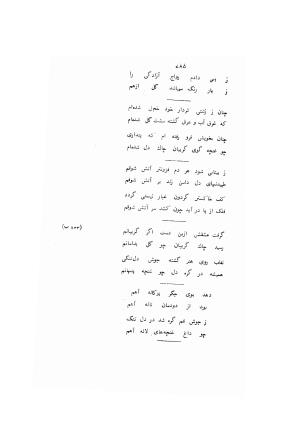 ۲۸۵
ز بس دادم رواج آزادگی را
ز بار رنگ میباشد گل ازهم
چنان ز زشتی کردار خود خجل شده‌ام
که غرق آب و عرق گشته مشت گل شده‌ام
چنان بخویش فرو رفته ام که پنداری
چو غنچه گوی گریبان چاک دل شده‌ام
ز بیتابی شود هر دم فزونتر آتش شوقم
طپشهای دل دامن زند بر آتش شوقم
کف خاکستر گردون غبار نیستی گردد
فلک از پا در آید چون کشد سر آتش شوقم
گرفت عشقش ازین دست اگر گریبانم
(۱۰۳ ب)
رسد چاک گریبان چو گل بدامانم
نقاب روی هنر گشته جوش دل‌تنگی
همیشه در گره دل چو غنچه پنهانم
دهد بوی جگر پرکاله آهم
بود از دودمان ناله آهم
ز جوش غم گره شد در دل تنگ
چو داغ غنچه‌های لاله آهم